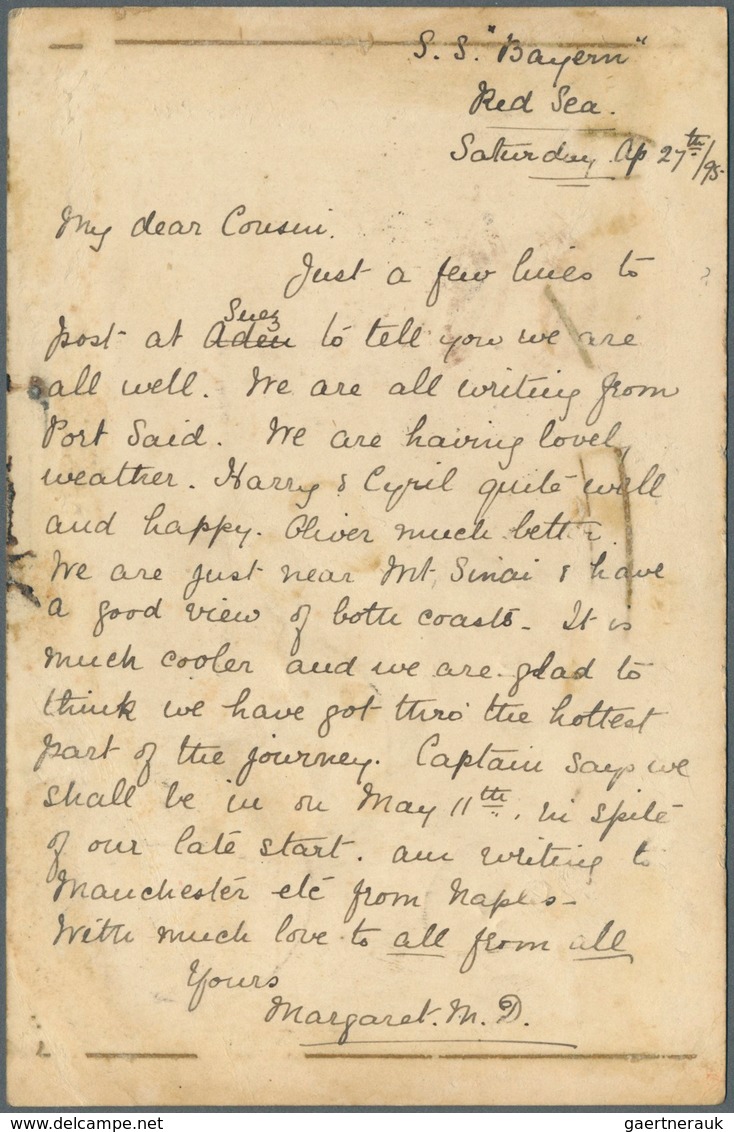 S. S. "Bayern"
Red Sea.
Saturday. Ap 27th/95
My dear Cousin.
Just a few lines to
Suez
post at Aden to tell you we are
all well. We are all writing from
Port Said. We are having lovely
weather. Harry & Cyril quite well
and happy. Oliver much better.
We are just near Mt. Sinai & have
a good view of both coasts. It is
much cooler and we are glad to
think we have got thro' the hottest
part of the journey. Captain says we
shall be in on May 11th. in spite
of our late start. am writing to
Manchester etc from Naples-
With much love to all from all
Yours
Margaret. M. D.
delcampe.net
gaertnerauk